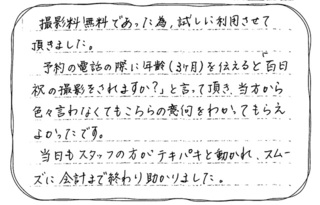 撮影料無料であった為、試しに利用させて
頂きました。
予約の電話の際に年齢(3ヶ月)を伝えると"百日
祝の撮影をされますか?"と言って頂き、当方から
色々言わなくてもこちらの意向をわかってもらえ
よかったです。
当日もスタッフの方がテキパキと動かれ、スムー
ズに会計まで終わり助かりました。